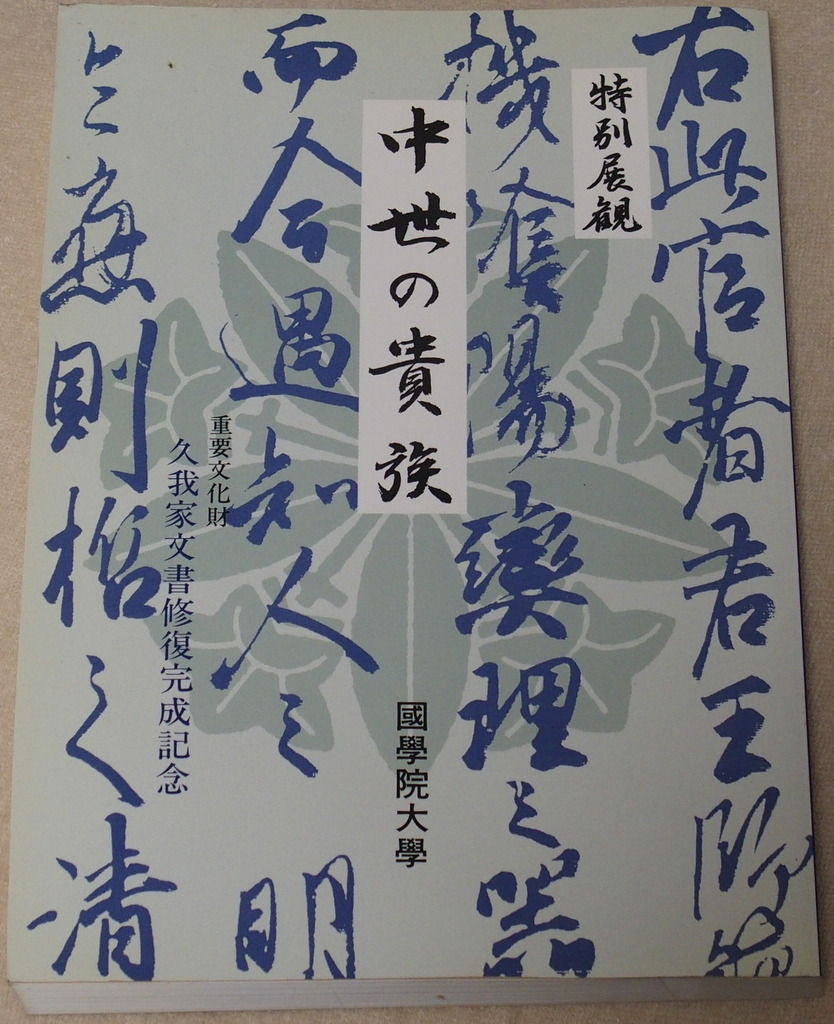 特別展観
中世の貴族
重要文化財
久我家文書修復完成記念
國學院大學
右此官者君王
機奮陽燮理之器
而今遇知人之 明
則哲之清